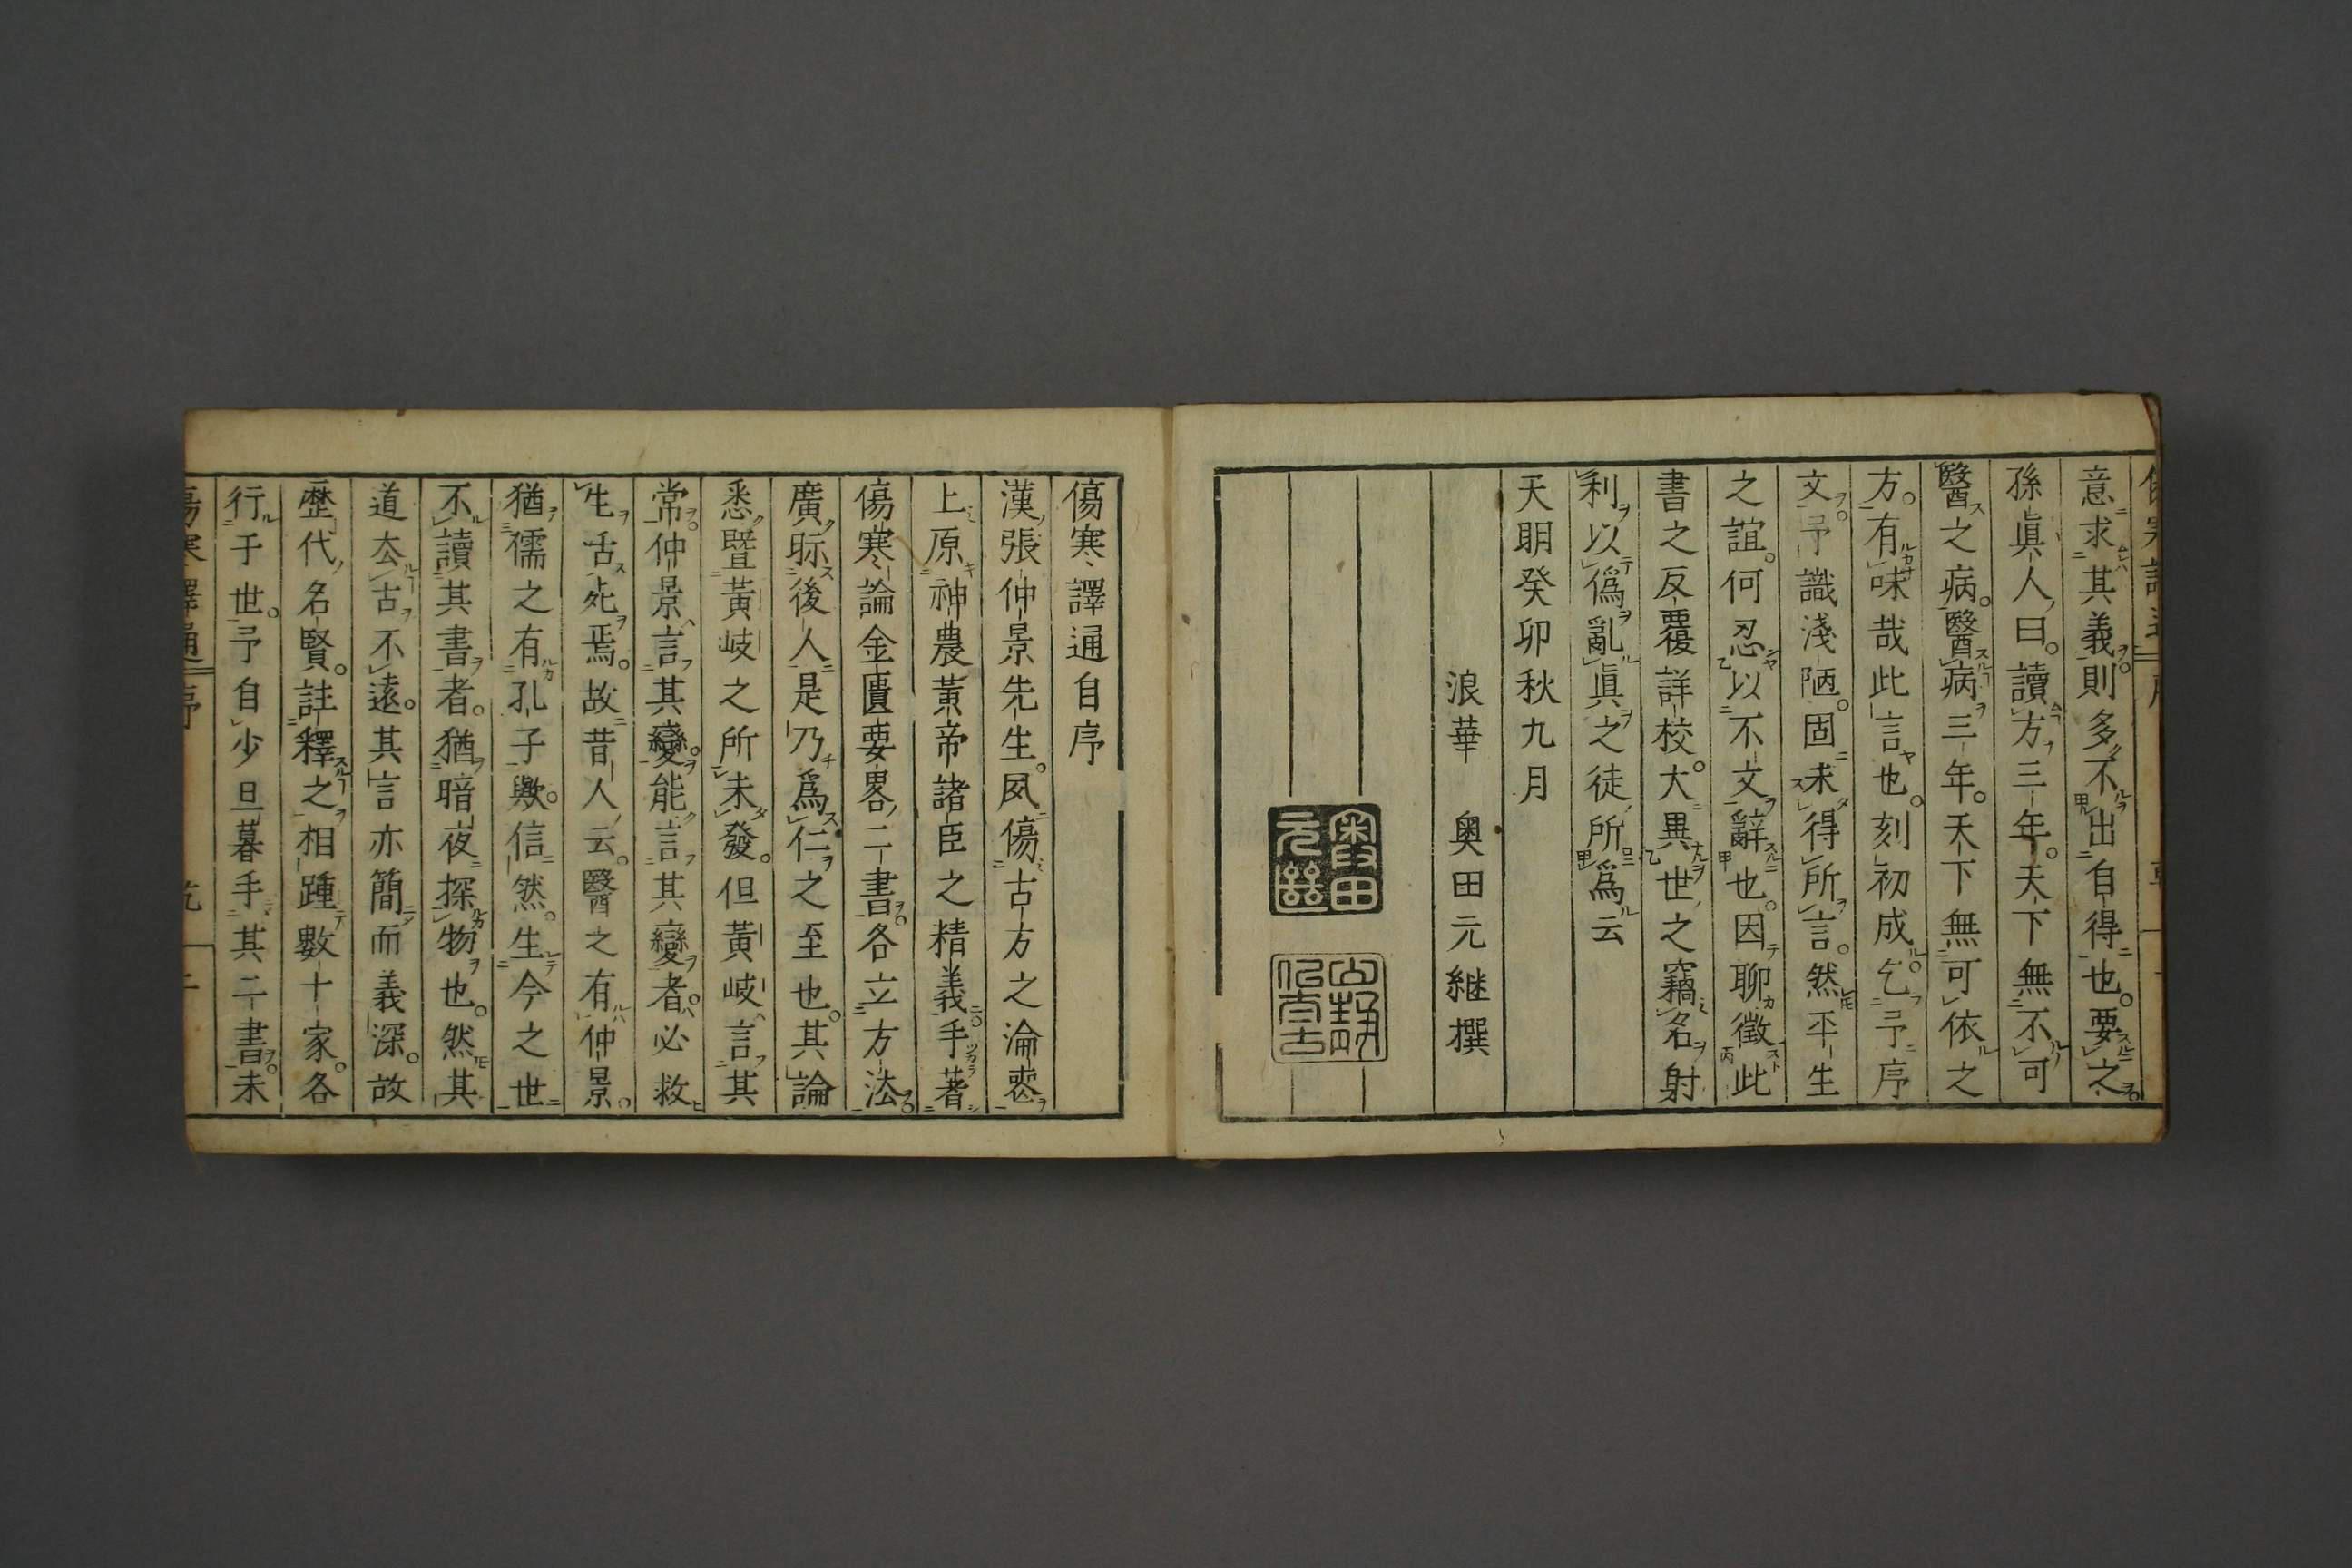 意求其義則多不出自得也要之
孫眞人曰讀方三年天下無不可
醫之病醫病三年天下無可依之
方有味哉此言也刻初成乞予序
文予識淺陋固未得所言然平生
之誼何忍以不文辭也因聊徵此
書之反覆詳校大異世之竊名射
利以僞亂眞之徒所爲云
天明癸卯秋九月
浪華 奥田元継撰
傷寒譯通自序
漢張仲景先生夙傷古方之淪悫
上原神農黃帝諸臣之精義手著
傷寒論金匱要畧二書各立方法
廣眎後人是乃爲仁之至也其論
悉曁黃岐之所未發但黃岐言其
常仲景言其變能言其變者必救
生活死焉故昔人云醫之有仲景
猶儒之有孔子歟信然生今之世
不讀其書者猶暗夜探物也然其
道厺古不遠其言亦簡而義深故
歷代名賢註釋之相踵數十家各
行于世予自少旦暮手其二書未
傷寒譯通 序 乾